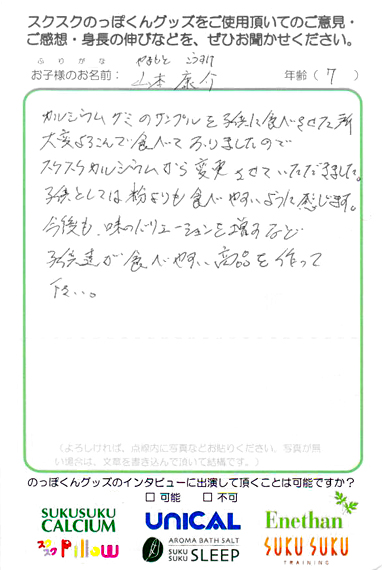 スクスクのっぽくんグッズをご使用頂いてのご意見・
ご感想・身長の伸びなどを、ぜひお聞かせください。
ふりがな やまもと こうすけ
お子様のお名前: 山本 康介 年齢(7)
カルシウムグミのサンプルを子供に食べさせた所
大変よろこんで食べておりましたので
スクスクカルシウムから変更させていただきました。
子供としては粉よりも食べやすいように感じます。
今後も、味のバリエーションを増すなど
子供達が食べやすい商品を作って
下さい。
(よろしければ、点線内に写真などお貼りください。写真が無
い場合は、文章を書き込んで頂いて結構です。)
のっぽくんグッズのインタビューに出演して頂くことは可能ですか?
□ 可能 □ 不可
SUKUSUKU CALCIUM
UNICAL
Enethan
スクスク Pillow
AROMA BATH SALT
SUKU SUKU SLEEP
SUKU SUKU
TRAINING